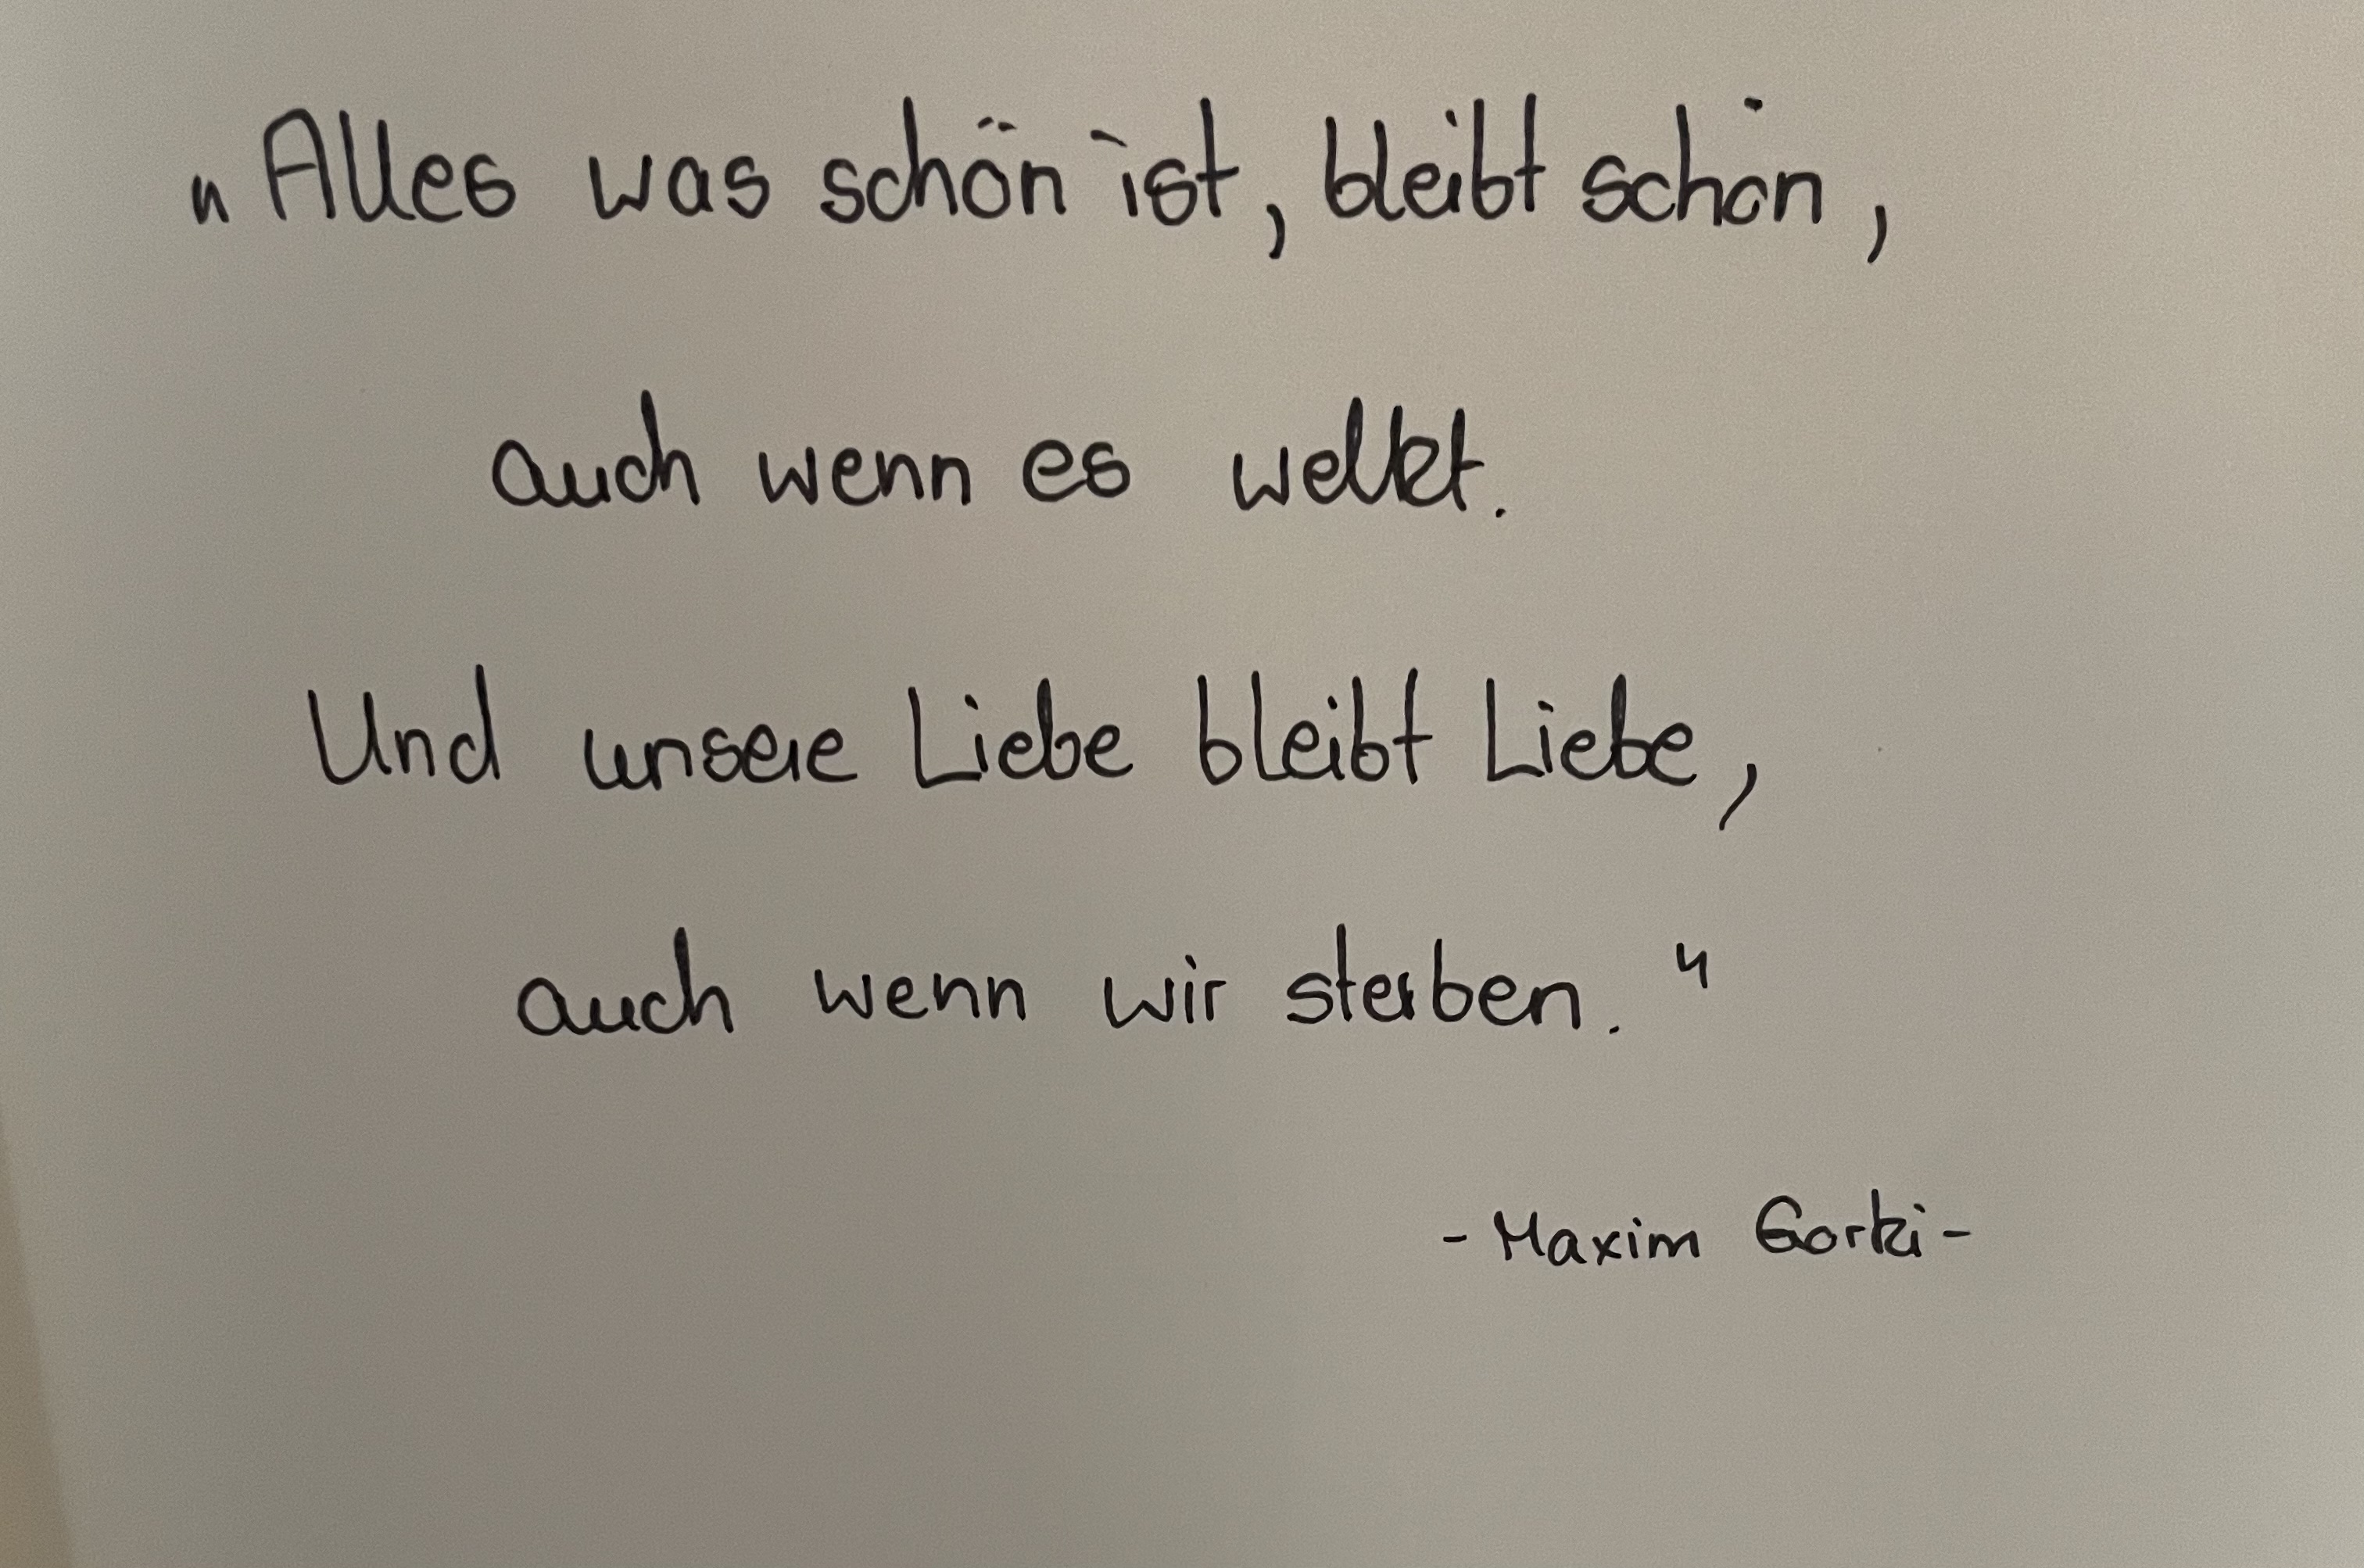 „Alles was schön ist, bleibt schön,
auch wenn es welkt.
Und unsere Liebe bleibt Liebe,
auch wenn wir sterben."
- Maxim Gorki -